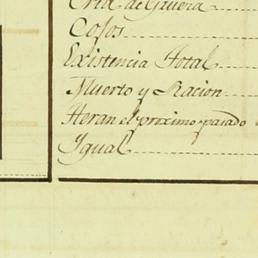 Cria de Guera
Cojos
Existencia Total
Muerto y Racion
Heran el proximo pasado
Ygual